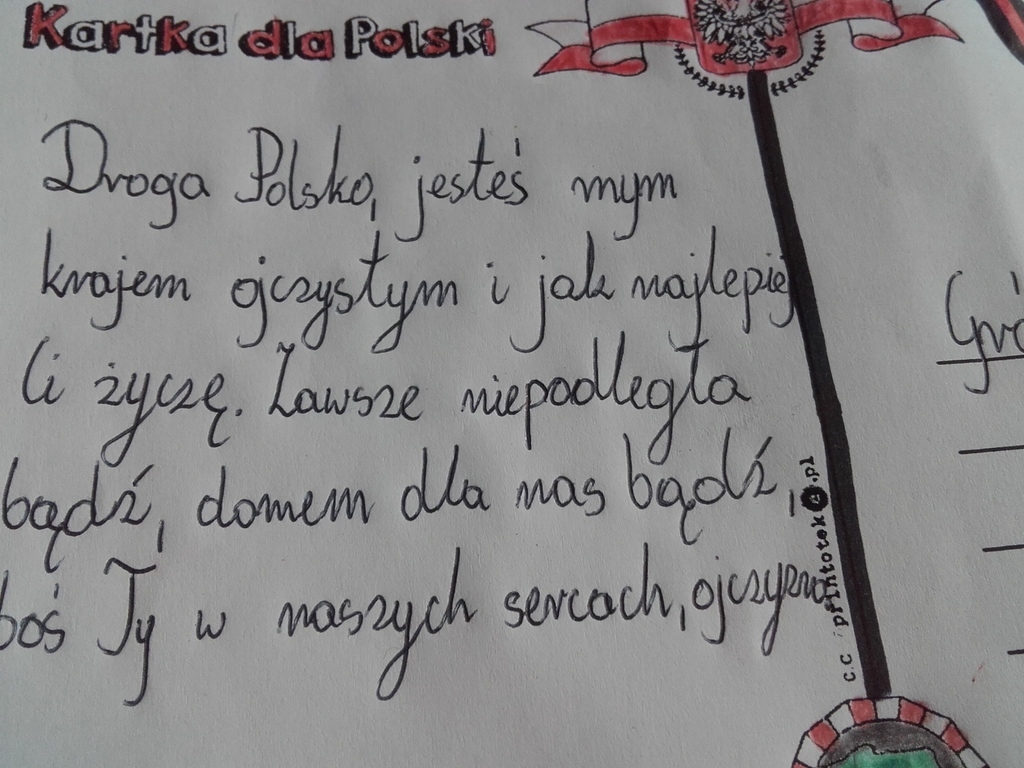 Kartka dla Polski
Droga Polsko, jesteś mym
krajem ojczystym i jak najlepiej
Ci życzę. Zawsze niepodległa
bądź, domem dla nas bądź,
boś Ty w naszych sercach, ojczyzno
c.c printoteka.pl